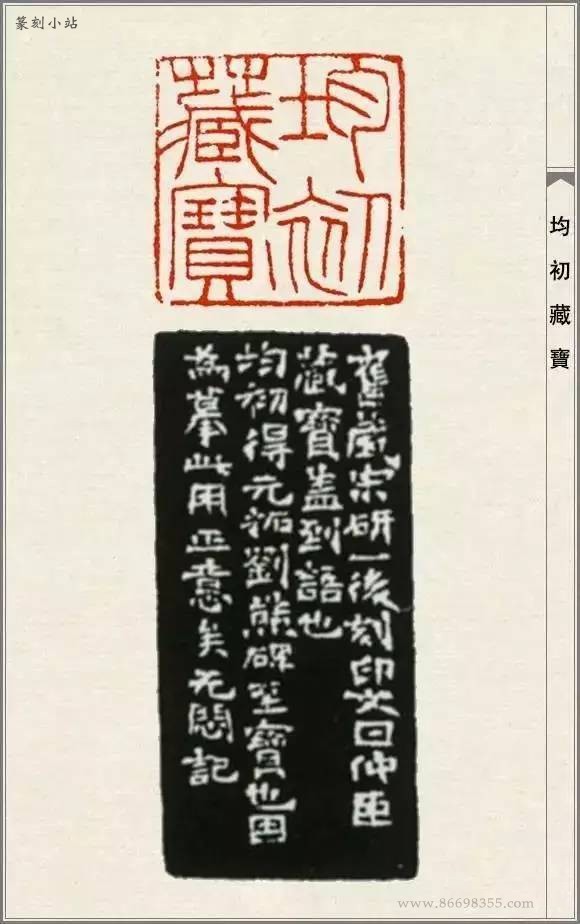 篆刻小站
均初
藏寶
均初藏寶
舊藏宋研一後刻印文曰仲臣
藏寶盖到語也
均初得元拓劉熊碑至寶也因
為摹此用正意矣无悶記
www.86698355.com